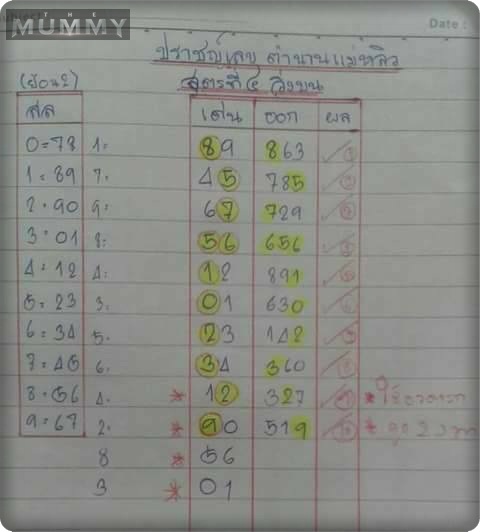 THE
MUMMY
Date :
ปราชญ์เลข ตำนานแม่หลิว
(ย้อน2) สูตรที่ ๕ วิ่งบน
เด่น ออก ผล
0=78 1= 89 863
1=89 7= 45 785
2=90 9= 67 729
3=01 8= 56 656
4=12 4= 12 891
5=23 3= 01 630
6=34 5= 23 142
7=45 6= 34 360
8=56 4= * 12 327
9=67 2= * 90 519
8 * 56
3 * 01